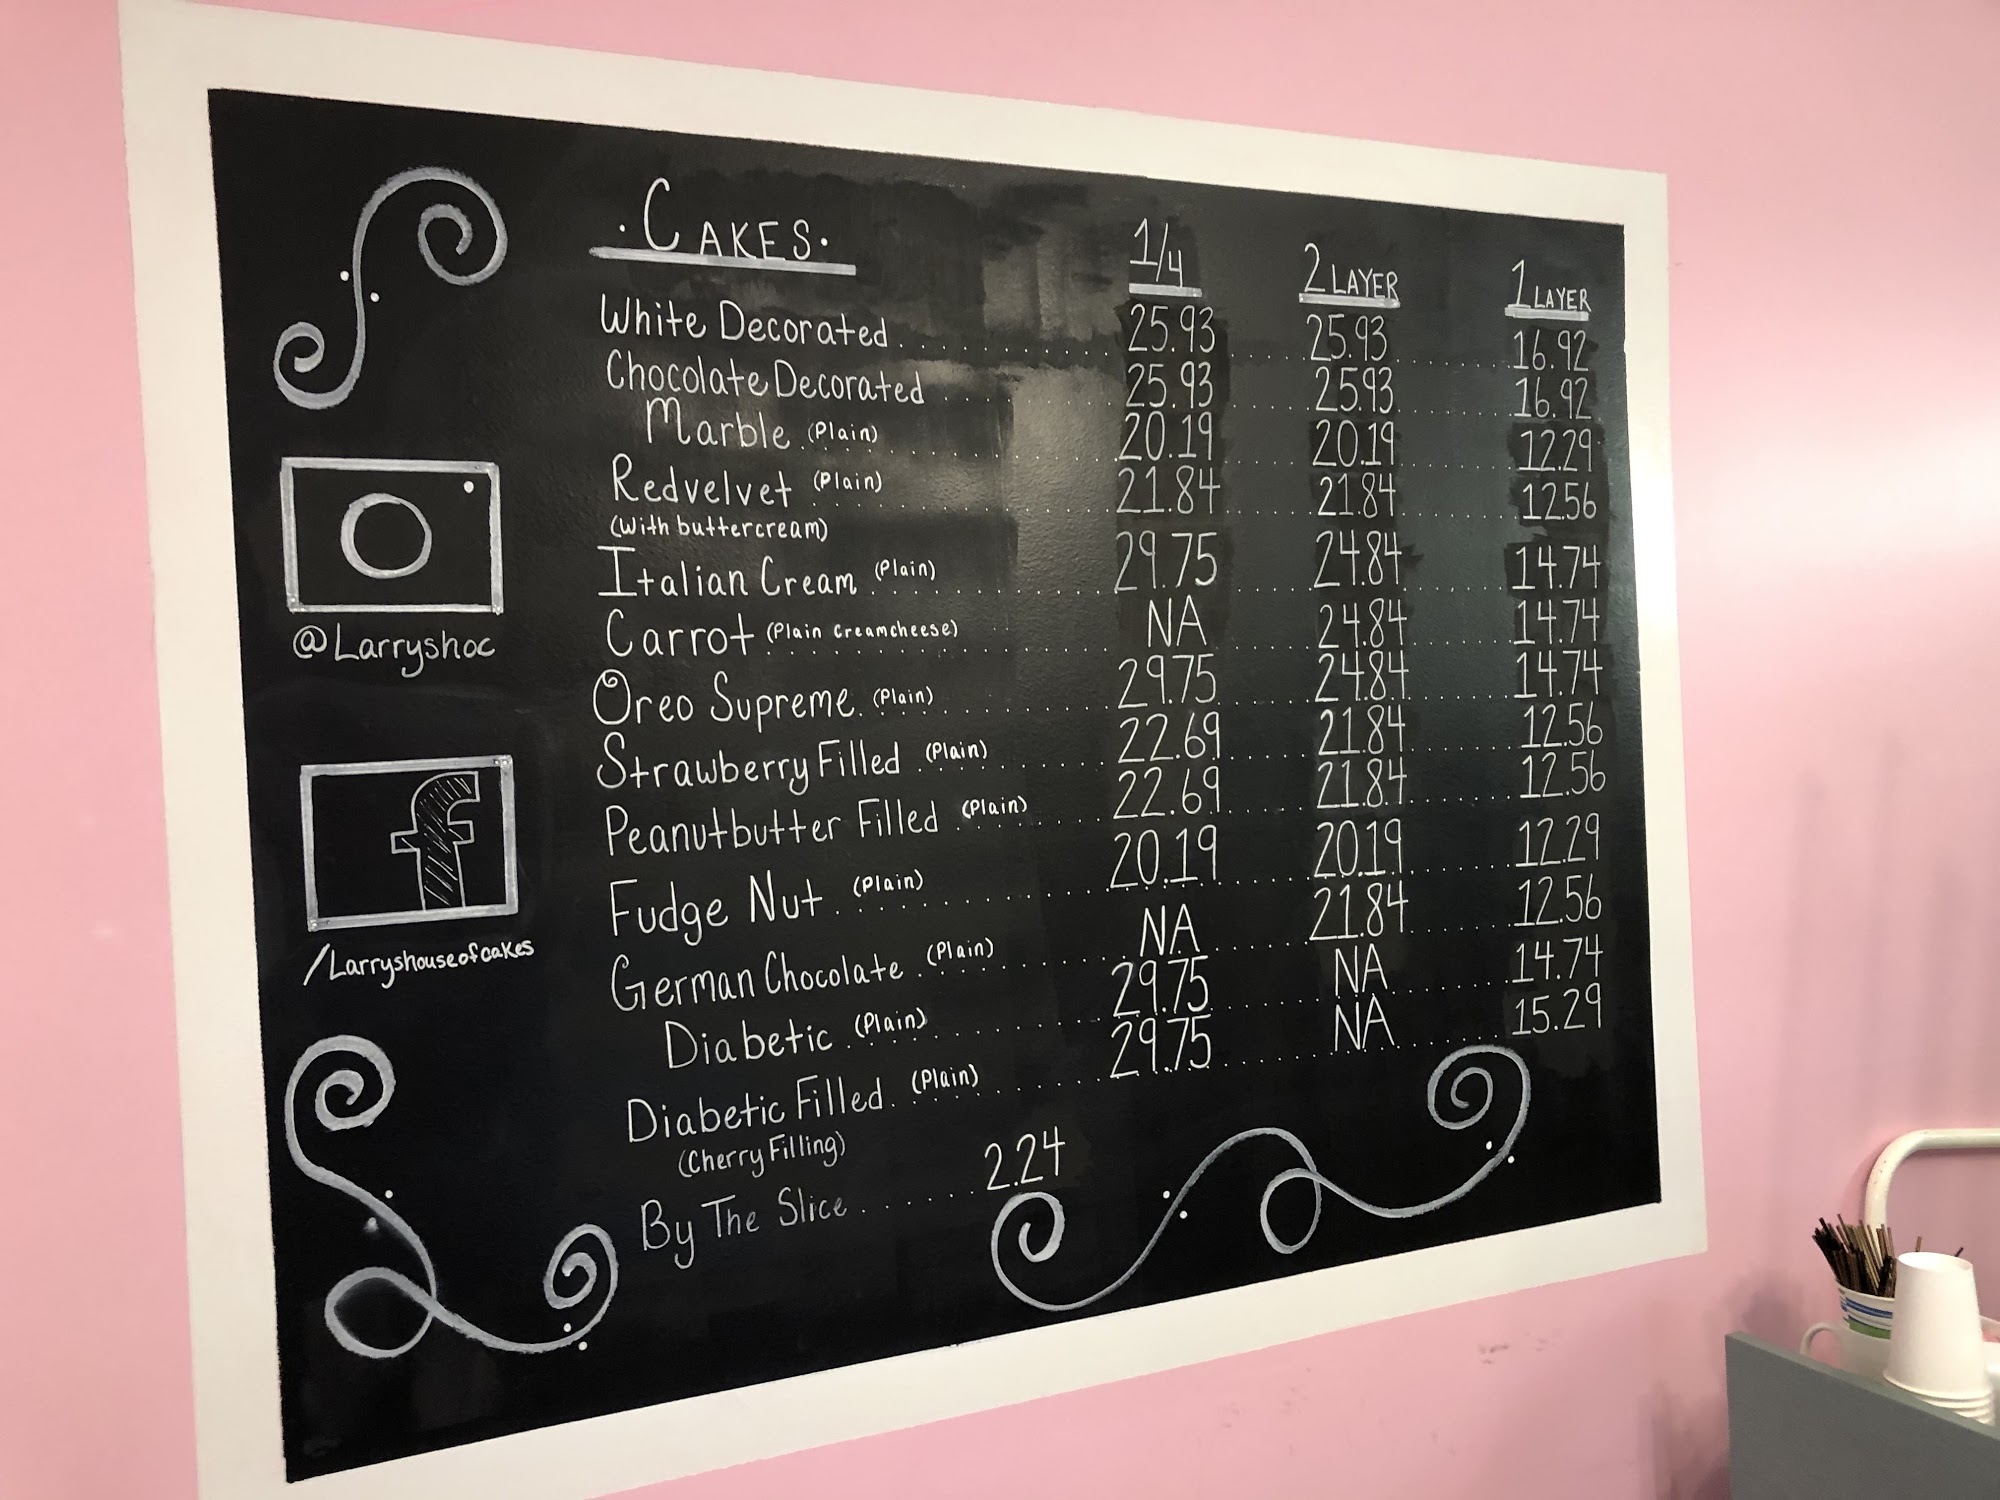 · CAKES · 1/4 2 LAYER 1 LAYER
White Decorated 25.93 25.93 16.92
Chocolate Decorated 25.93 25.93 16.92
Marble (Plain) 20.19 20.19 12.29
Redvelvet (Plain) 21.84 21.84 12.56
(With buttercream)
Italian Cream (Plain) 29.75 24.84 14.74
Carrot (Plain Creamcheese) NA 24.84 14.74
Oreo Supreme (Plain) 29.75 24.84 14.74
Strawberry Filled (Plain) 22.69 21.84 12.56
Peanutbutter Filled (Plain) 22.69 21.84 12.56
Fudge Nut (Plain) 20.19 20.19 12.29
German Chocolate (Plain) NA 21.84 12.56
Diabetic (Plain) 29.75 NA 14.74
Diabetic Filled (Plain) 29.75 NA 15.29
(Cherry Filling)
By The Slice 2.24
@Larryshoc
f
/Larryshouseofcakes